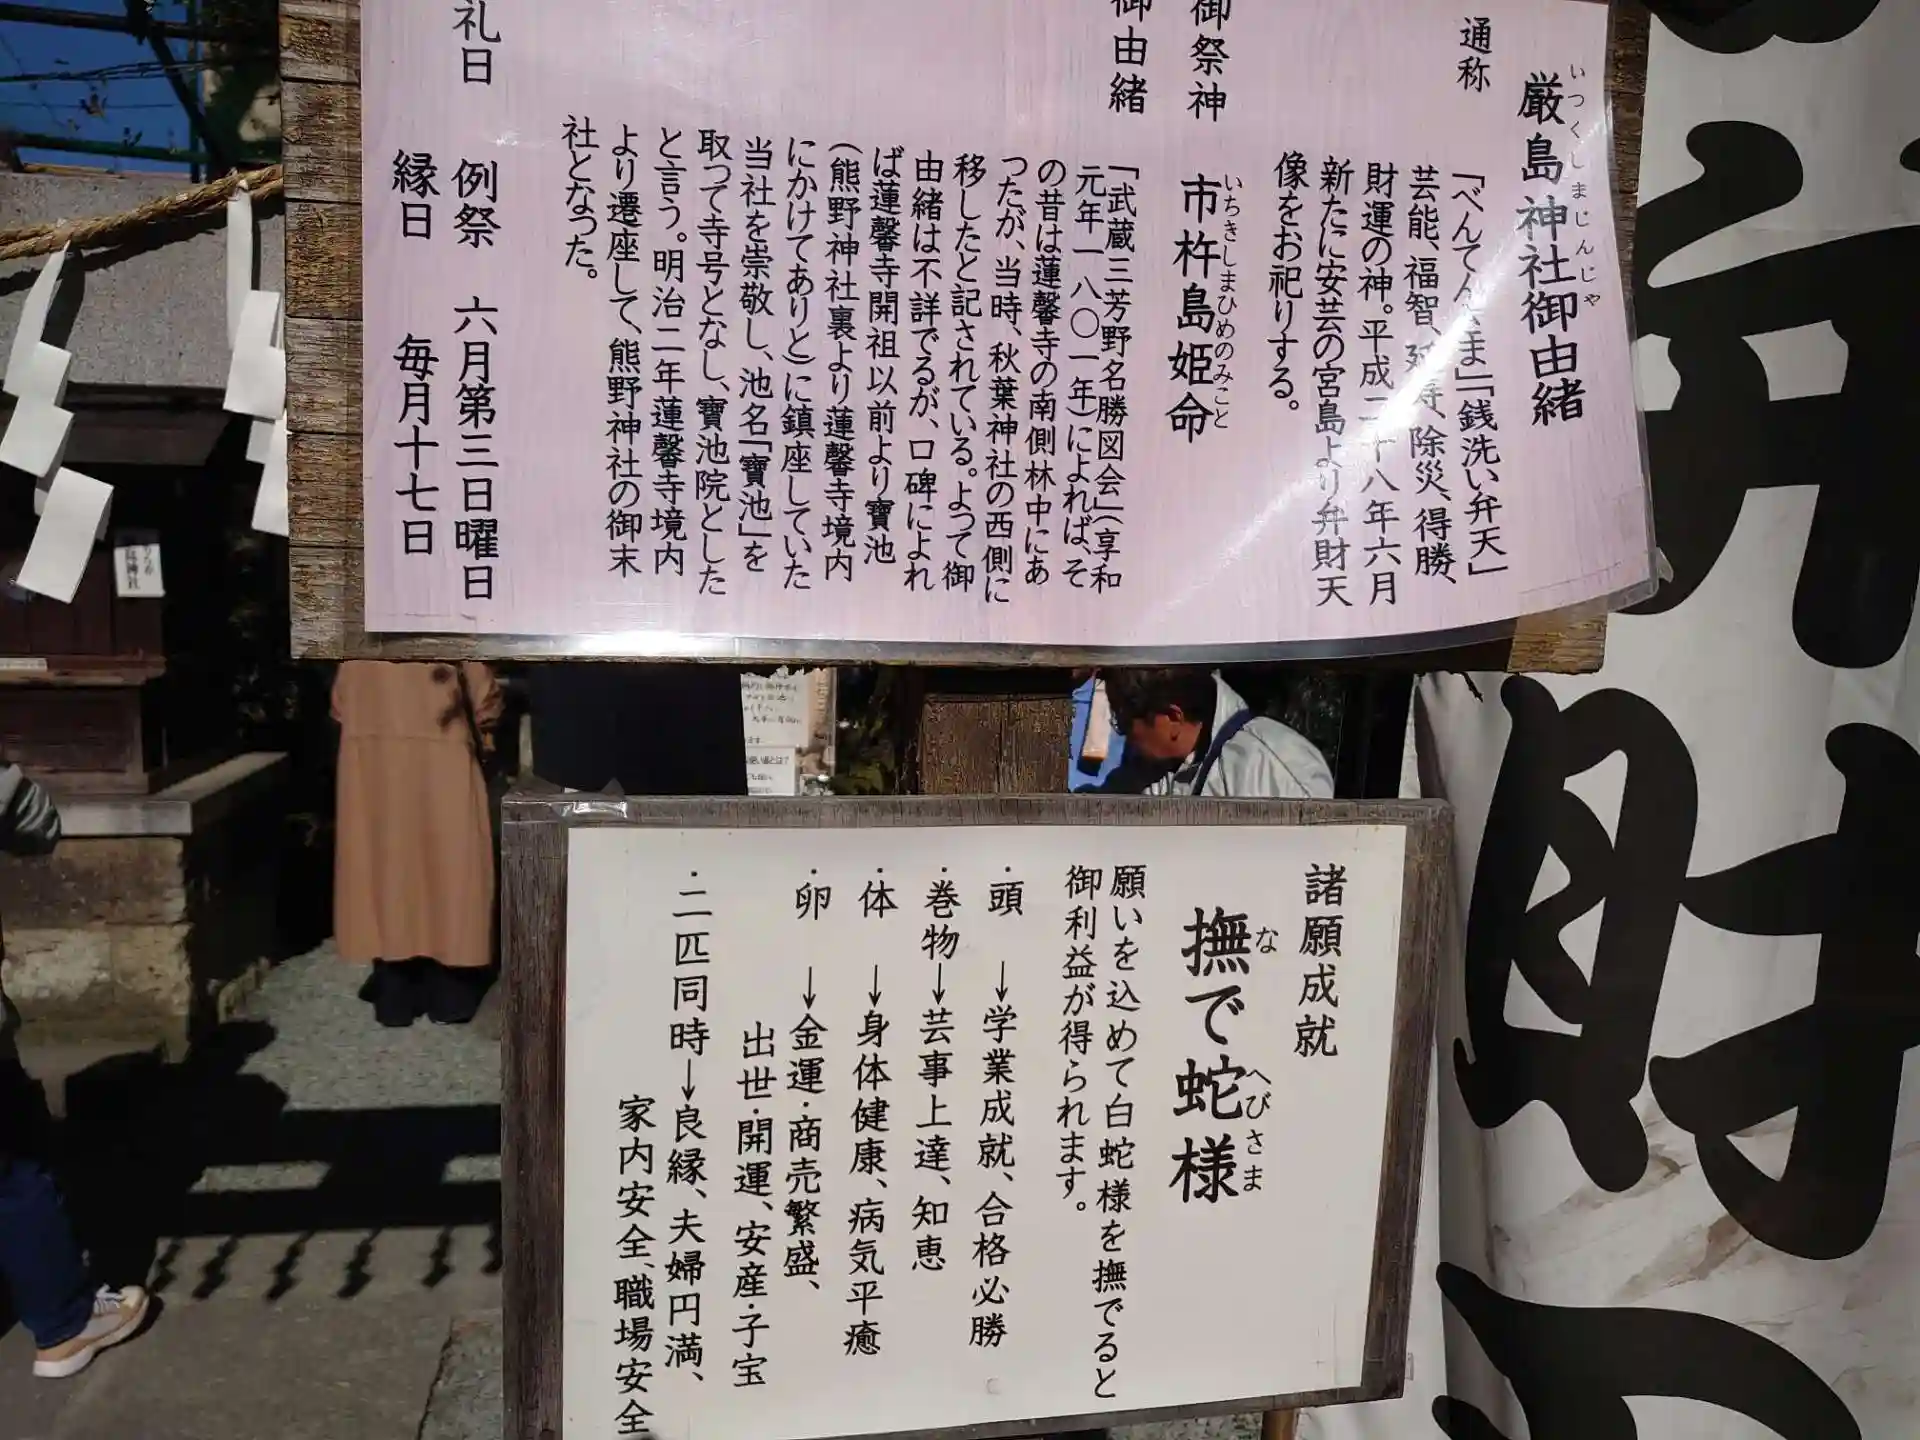 厳島神社御由緒
いつくしまじんじゃ
通称
「べんてんさま」「銭洗い弁天」
芸能、福智、延寿、除災、得勝、
財運の神。平成二十八年六月
新たに安芸の宮島より弁財天
像をお祀りする。
御祭神
市杵島姫命
いちきしまひめのみこと
御由緒
「武蔵三芳野名勝図会」(享和
元年一八〇一年)によれば、そ
の昔は蓮馨寺の南側林中にあ
ったが、当時、秋葉神社の西側に
移したと記されている。よって御
由緒は不詳でるが、口碑によれ
ば蓮馨寺開祖以前より寶池
(熊野神社裏より蓮馨寺境内
にかけてありと)に鎮座していた
当社を崇敬し、池名「寶池」を
取って寺号となし、寶池院とした
と言う。明治二年蓮馨寺境内
より遷座して、熊野神社の御末
社となった。
礼日
例祭 六月第三日曜日
縁日 毎月十七日
諸願成就
撫で蛇様
な へびさま
願いを込めて白蛇様を撫でると
御利益が得られます。
・頭 →学業成就、合格必勝
・巻物→芸事上達、知恵
・体 →身体健康、病気平癒
・卵 →金運・商売繁盛、
出世・開運、安産・子宝
・二匹同時→良縁、夫婦円満、
家内安全、職場安全
弁財